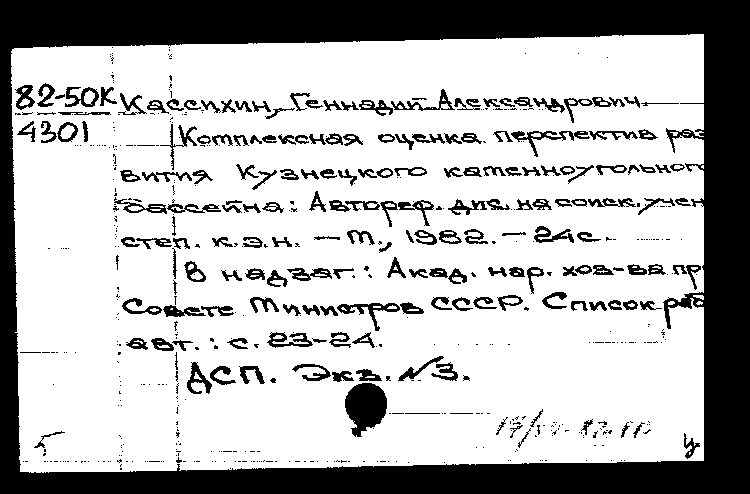 82-50К Кассихин, Геннадий Александрович.
4301 Комплексная оценка перспектив раз
вития Кузнецкого каменноугольного
бассейна: Автореф. дис. на соиск. учен
степ. к.э.н. — М., 1982. — 24с.
В надзаг.: Акад. нар. хоз-ва пр
Совете Министров СССР. Список раб
авт.: с. 23-24.
ДСП. Экз. №3.
5
у